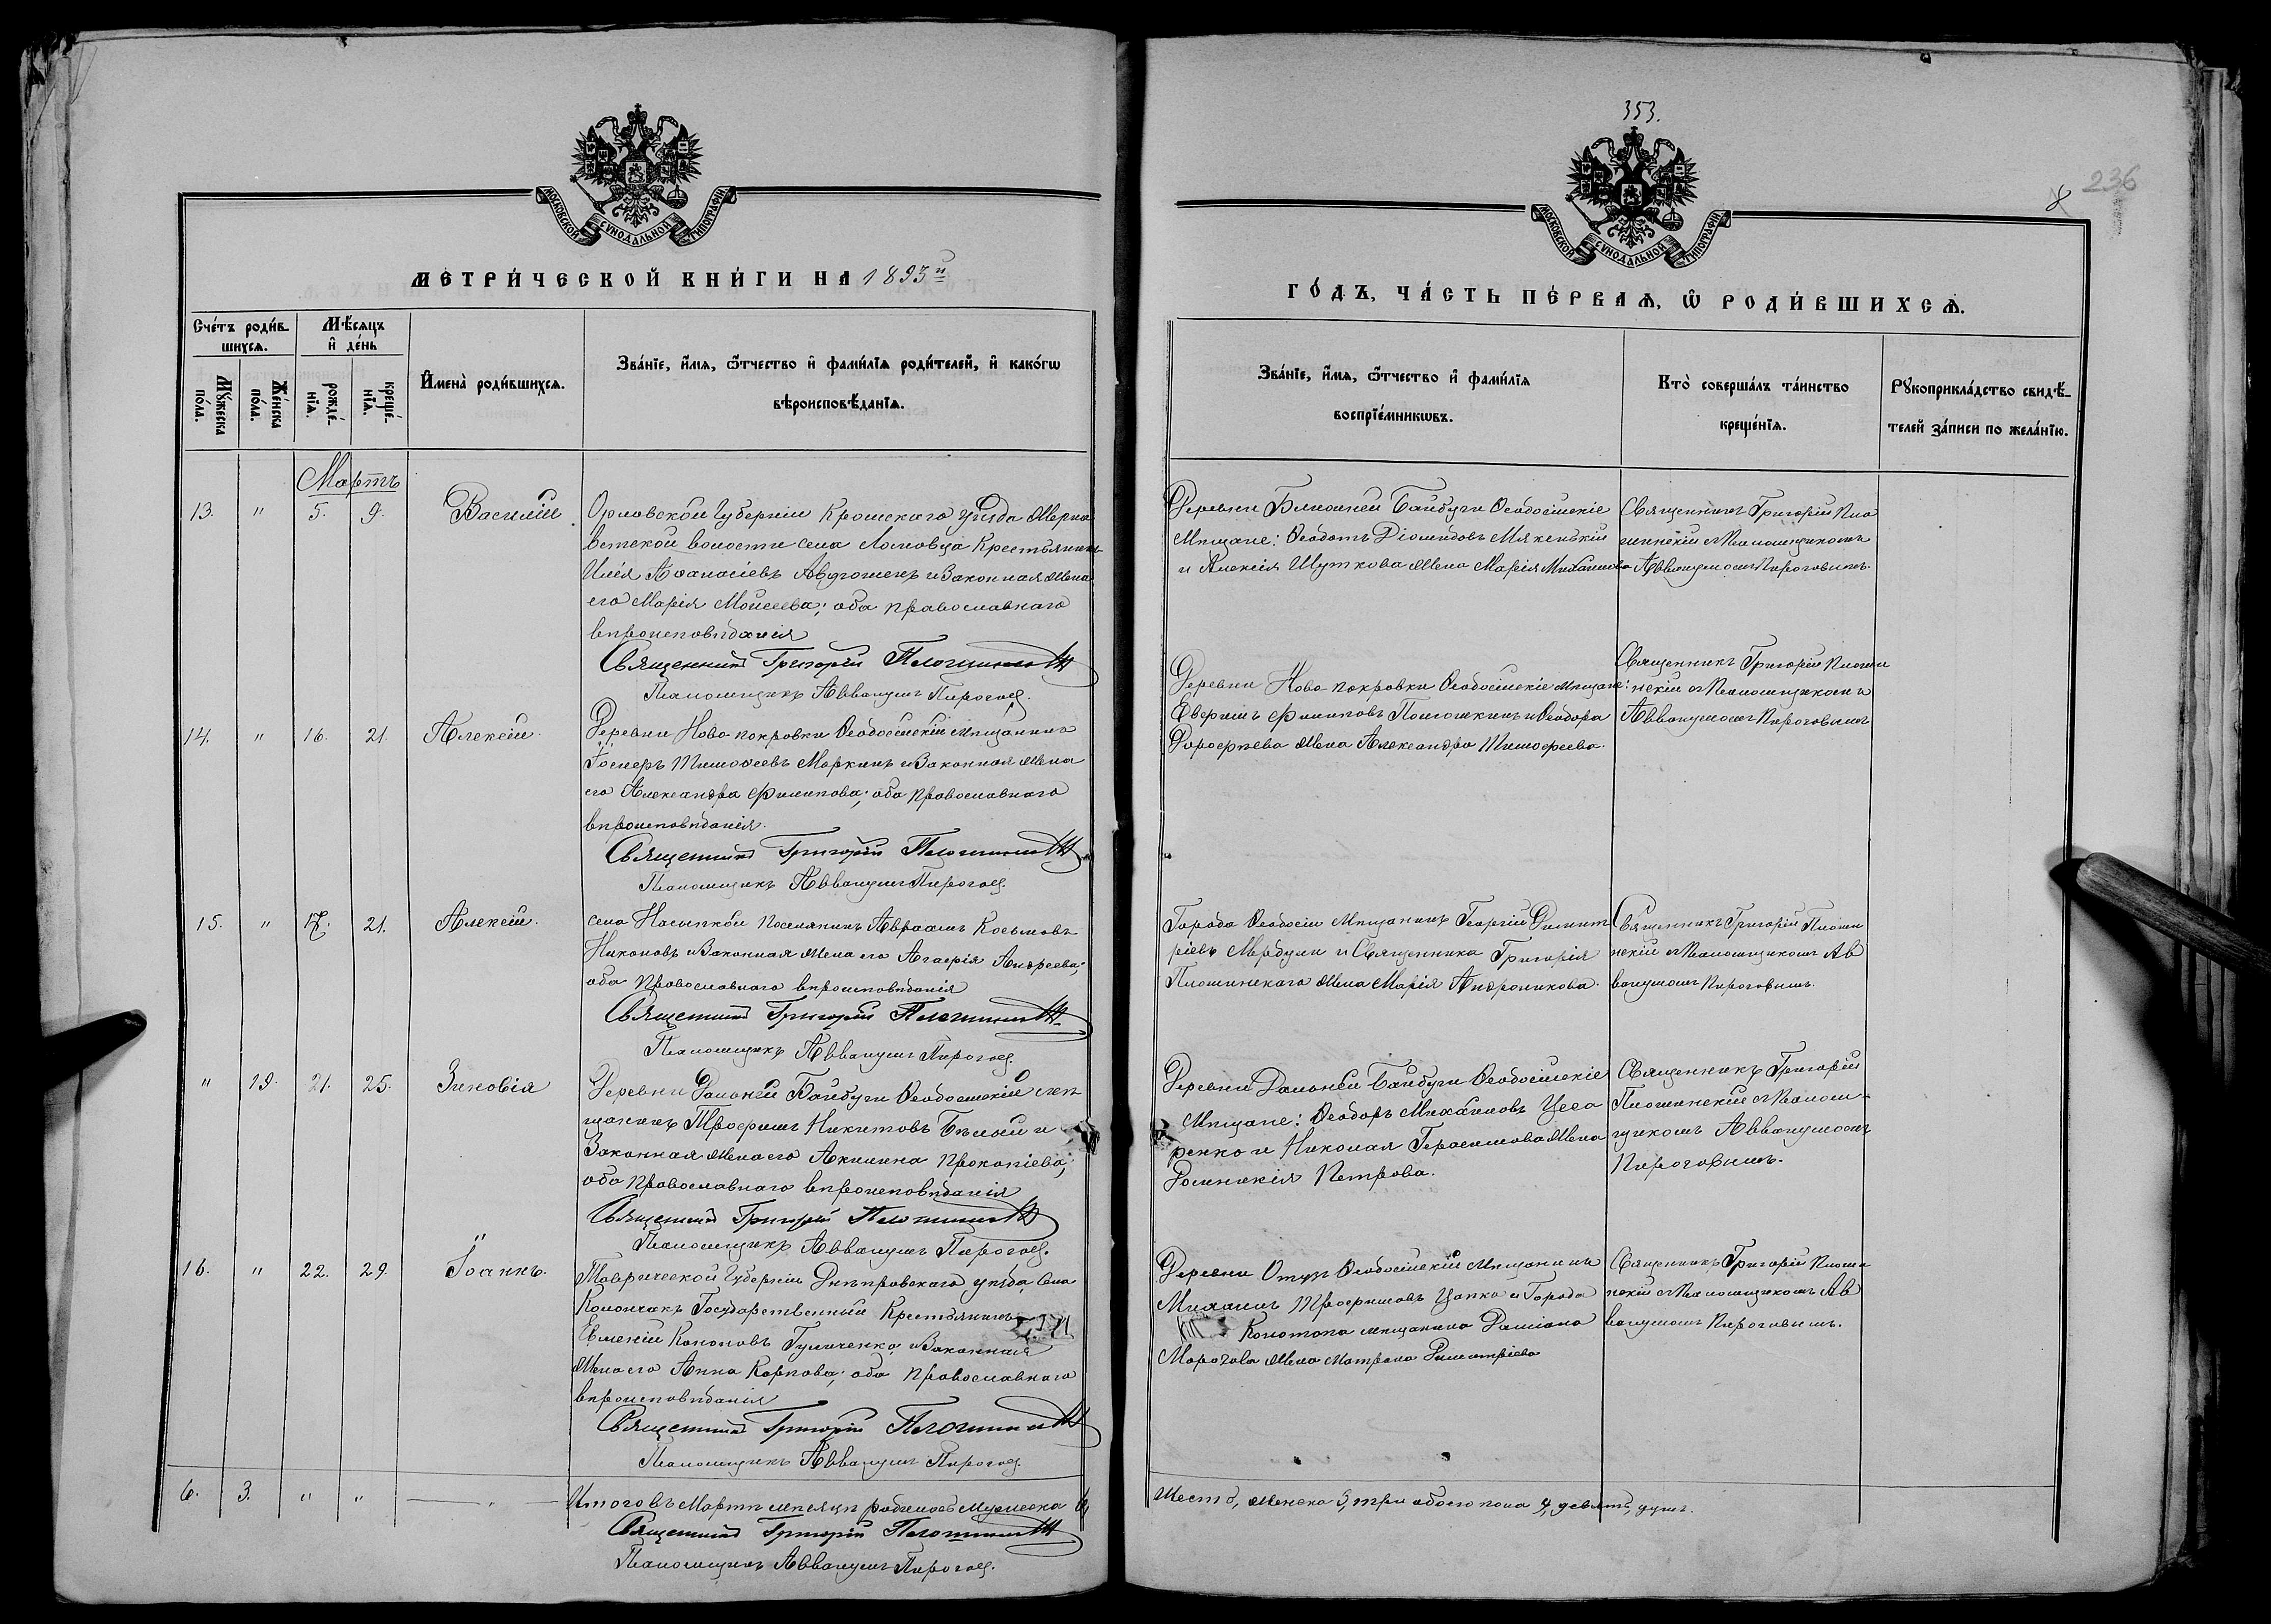 МОСКОВСКОЙ СѴНОДАЛЬНОЙ ТИПОГРАФІИ
МЕТРИ́ЧЕСКОЙ КНИ́ГИ НА 1893й
Сче́тъ роди́в-
шихсѧ.
Мѣ́сѧцъ
и҆ де́нь
Мꙋ́жеска
по́ла.
Же́нска
по́ла.
рожде́-
нїѧ.
креще́-
нїѧ.
И҆мена̀ роди́вшихсѧ.
Зва́нїе, и҆́мѧ, ѻ҆́тчество и҆ фами́лїѧ роди́телей, и҆ како́гѡ
вѣроисповѣ́данїѧ.
Мартъ
13. " 5. 9. Василій
Орловской Губерніи Кромскаго уѣзда
ветской волости села Ломовца Крестьянинъ
Илія Аѳанасіевъ и Законная жена
его Марія Моисеева; оба православнаго
вѣроисповѣданія
Священникъ Григорій Плошинскій
Псаломщикъ Аввакумъ Пироговъ.
14. " 16. 21. Алексій.
Деревни Ново-покровки Ѳеодосійскій мѣщанинъ
Тимоѳеевъ Маркинъ и Законная жена
его Александра Филипова; оба православнаго
вѣроисповѣданія.
Священникъ Григорій Плошинскій
Псаломщикъ Аввакумъ Пироговъ.
15. " 17. 21. Алексій.
села Насыпкой поселянинъ Авраамъ Косьмовъ
Никоновъ и Законная жена его Агаѳія Андреева;
оба православнаго вѣроисповѣданія
Священникъ Григорій Плошинскій
Псаломщикъ Аввакумъ Пироговъ.
" 19. 21. 25. Зиновія
Деревни Дальней Байбуги Ѳеодосійскій мѣ
щанинъ Трофимъ Никитовъ Бѣлый и
Законная жена его Акилина Прокопіева;
оба православнаго вѣроисповѣданія
Священникъ Григорій Плошинскій
Псаломщикъ Аввакумъ Пироговъ.
16. " 22. 29. Іоаннъ.
Таврической Губерніи Днѣпровскаго уѣзда, села
Колончакъ Государственный Крестьянинъ
Евменій Кононовъ и Законная
жена его Анна Карпова; оба православнаго
вѣроисповѣданія
Священникъ Григорій Плошинскій
Псаломщикъ Аввакумъ Пироговъ.
6. 3. " "
Итого въ Мартѣ мѣсяцѣ родилось мужеска 6,
Священникъ Григорій Плошинскій
Псаломщикъ Аввакумъ Пироговъ.
353.
236
8
МОСКОВСКОЙ СѴНОДАЛЬНОЙ ТИПОГРАФІИ
ГО́ДЪ, ЧА́СТЬ ПЕ́РВАѦ, Ѡ҆ РОДИ́ВШИХСѦ.
Зва́нїе, и҆́мѧ, ѻ҆́тчество и҆ фами́лїѧ
воспрїе́мникѡвъ.
Кто̀ соверша́лъ та́инство
креще́нїѧ.
Рꙋкоприкла́дство свидѣ́-
телей за́писи по жела́нїю.
Деревни Ближней Байбуги Ѳеодосійскіе
Мѣщане: Ѳеодотъ Діомидовъ Мякенькій
и Алексія Шуткова жена Марія Михайлова
Священникъ Григорій Пло
шинскій съ Псаломщикомъ
Аввакумомъ Пироговымъ.
Деревни Ново-покровки Ѳеодосійскіе мѣщане:
Ефремъ Филиповъ и Ѳеодора
Дороѳеева жена Александра Тимоѳеева.
Священникъ Григорій Плоши
нскій съ Псаломщикомъ
Аввакумомъ Пироговымъ
Города Ѳеодосіи мѣщанинъ Георгій Димит
ріевъ и Священника Григорія
Плошинскаго жена Марія Андроникова.
Священникъ Григорій Плоши
нскій съ Псаломщикомъ Ав
вакумомъ Пироговымъ.
Деревни Дальней Байбуги Ѳеодосійскіе
Мѣщане: Ѳеодоръ Михайловъ Цеса
ренко и Николая Герасимова жена
Домникія Петрова.
Священникъ Григорій
Плошинскій съ Псалом-
щикомъ Аввакумомъ
Пироговымъ.
Деревни Отузъ Ѳеодосійскій мѣщанинъ
Михаилъ Трофимовъ Цапко и Города
Конотопа мѣщанина Даміана
Морозова жена Матрона Димитріева
Священникъ Григорій Плоши
нскій съ Псаломщикомъ Ав
вакумомъ Пироговымъ.
Шесть, женска 3, три обоего пола 9, девять, душъ.